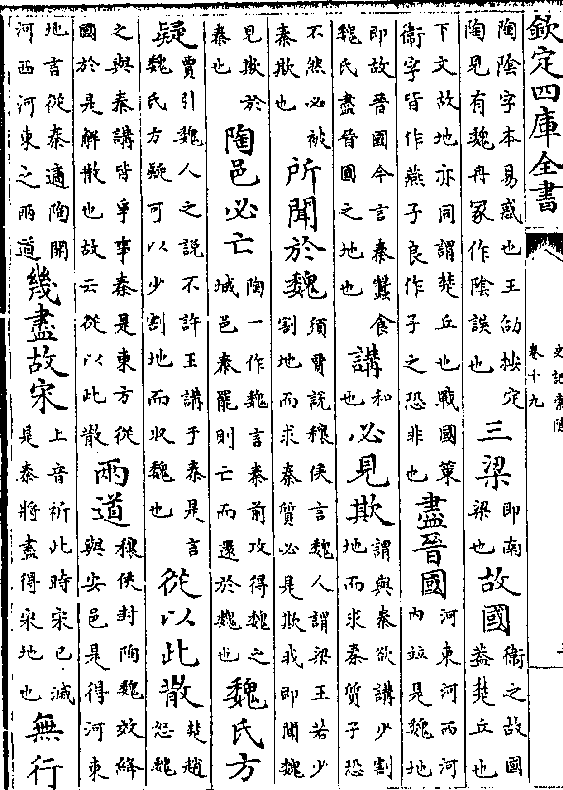 欽定四庫全書
史記索隱
卷十九
陶陰字本易惑也王劭按定
陶見有魏冉冢作陰誤也
三梁
即南
梁也
故國
衛之故國
蓋楚丘也
下文故地亦同謂楚丘也戰國策
衛字皆作燕子良作子之恐非也
盡晉國
河東河西河
内竝是魏地
即故晉國今言秦蠶食
魏氏盡晉國之地也
講
和
也
必見欺
謂與秦欲講少割
地而求秦質子恐
不然必被
秦欺也
所聞於魏
須賈說穰侯言魏人謂梁王若少
割地而求秦質必是欺我即聞魏
見欺於
秦也
陶邑必亡
陶一作魏言秦前攻得魏之
城邑秦罷則亡而還於魏也
魏氏方
疑
賈引魏人之說不許王講于秦是言
魏氏方疑可以少割地而收魏也
從以此散
楚趙
怒魏
之與秦講皆爭事秦是東方從
國於是解散也故云從以此散
兩道
穰侯封陶魏效絳
與安邑是得河東
地言從秦適陶開
河西河東之兩道
幾盡故宋
上音祈此時宋已滅
是秦將盡得宋地也
無行